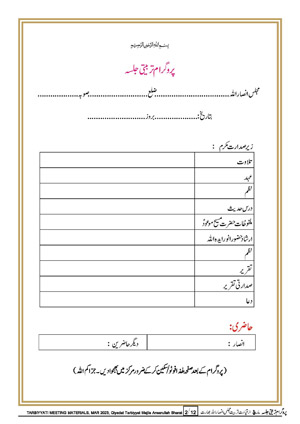 بسم اللہ الرحمن الرحیم
پروگرام تربیتی جلسہ
مجلس انصار اللہ.......................ضلع.......................صوبہ.......................
بتاریخ:.......................بروز.......................
زیر صدارت مکرم :
تلاوت
عہد
نظم
درس حدیث
ملفوظات حضرت مسیح موعودؑ
ارشاد حضور انور ایدہ اللہ
نظم
تقریر
صدارتی تقریر
دعا
حاضری:
انصار : دیگر حاضرین :
(پروگرام کے بعد صفحہ ھذا فوٹو/سکین کر کے ضرور مرکز میں بھجوا دیں۔ جزاکم اللہ)
TARBIYYATI MEETING MATERIALS, MAR 2023, Qiyadat Tarbiyyat Majlis Ansarullah Bharat 2/12